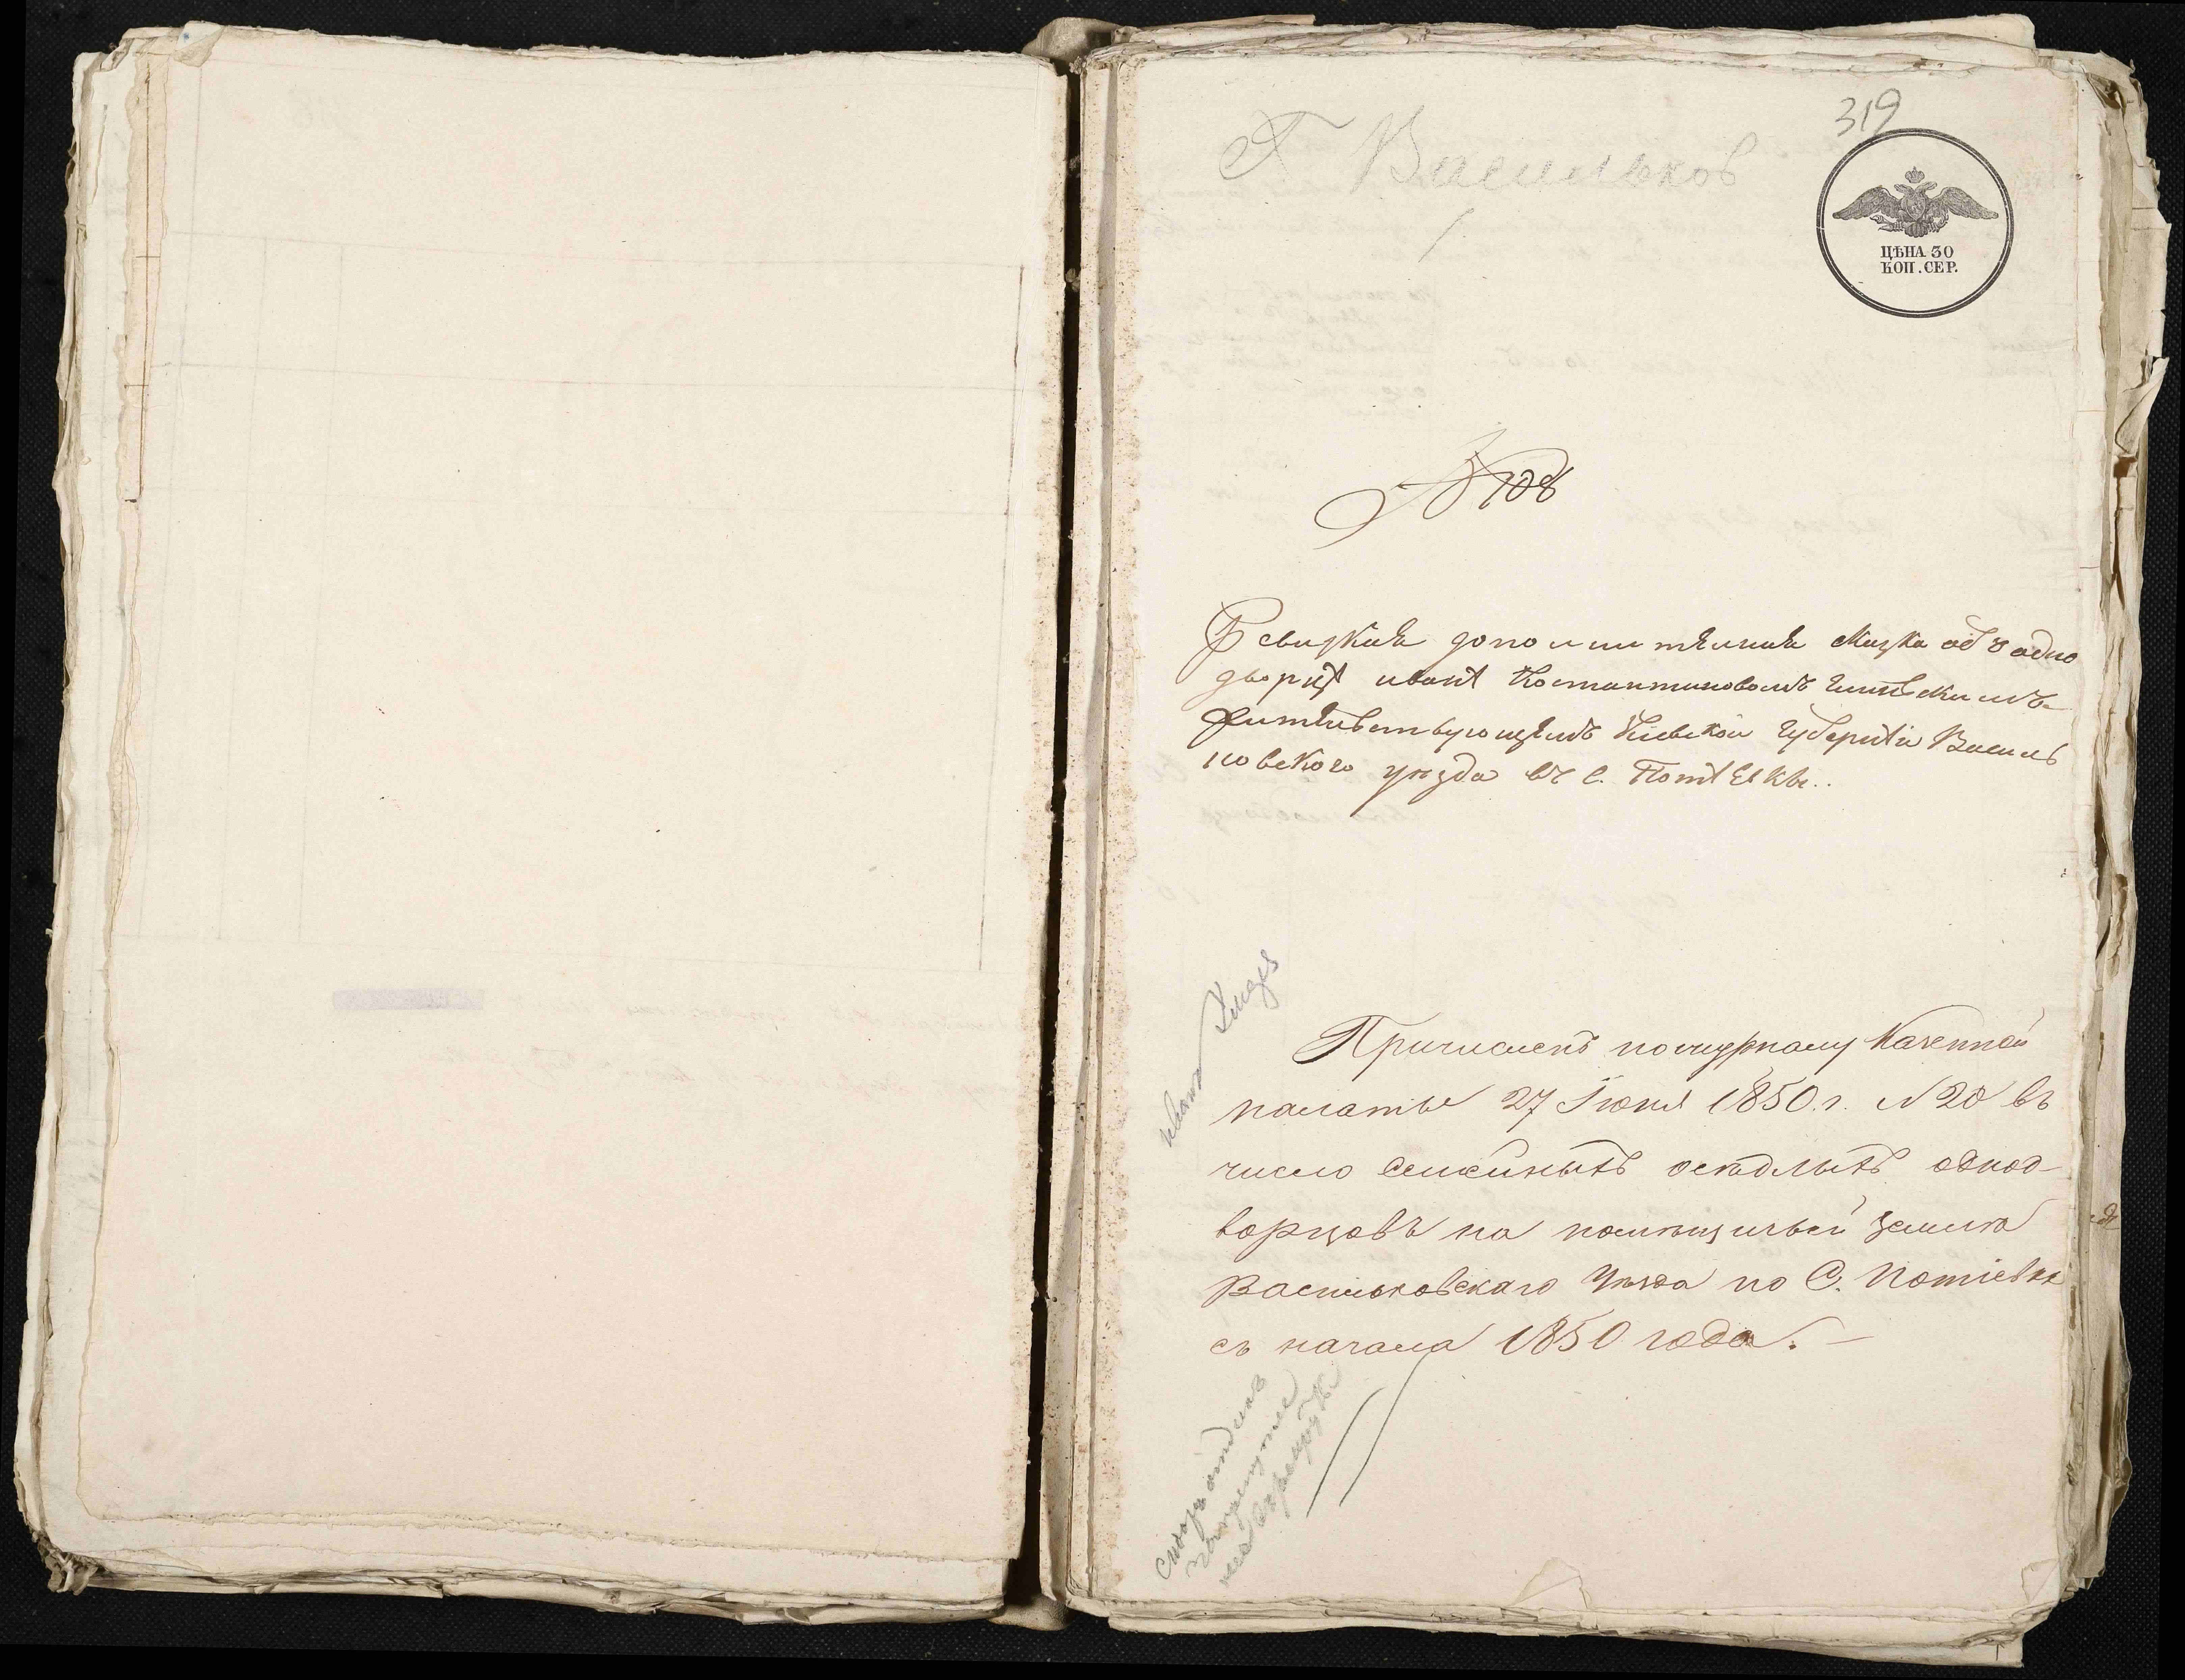 319
Г Васильков
1.
ЦѢНА 30
КОП. СЕР.
№ 108
Ревизкая дополнителная сказка объ одно
дворцѣ иванѣ Костантиновомъ
жителствующемъ Кіевской Губерніи Василь
ковского уѣзда въ с. Потіевкы..
иванъ
Причисленъ по журналу Казенной
палаты 27 Іюня 1850 г. N 20 въ
число семейныхъ осѣдлыхъ однод-
ворцовъ на помѣщичьей землѣ
Васильковскаго Уѣзда по С. Потіевкѣ
съ начала 1850 года. —